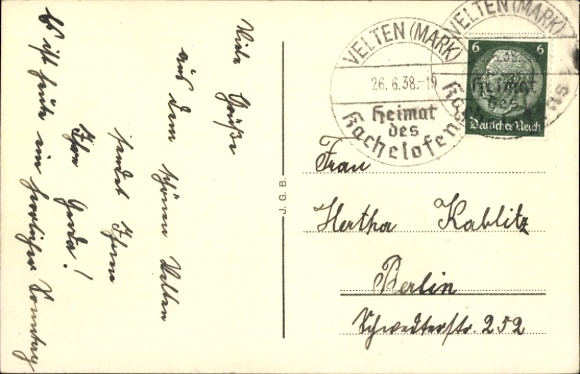 Viele Grüße
aus dem schönen Velten
sendet Ihnen
Ihre Gerda!
Es ist heute ein herrlicher Sonntag
J.G.B.
VELTEN (MARK)
26.6.38.-19
Heimat
des
Kachelofens
VELTEN (MARK)
Heimat
des
6 6
Deutsches Reich
Frau
Hertha Kablitz
Berlin
Schwedterstr. 252